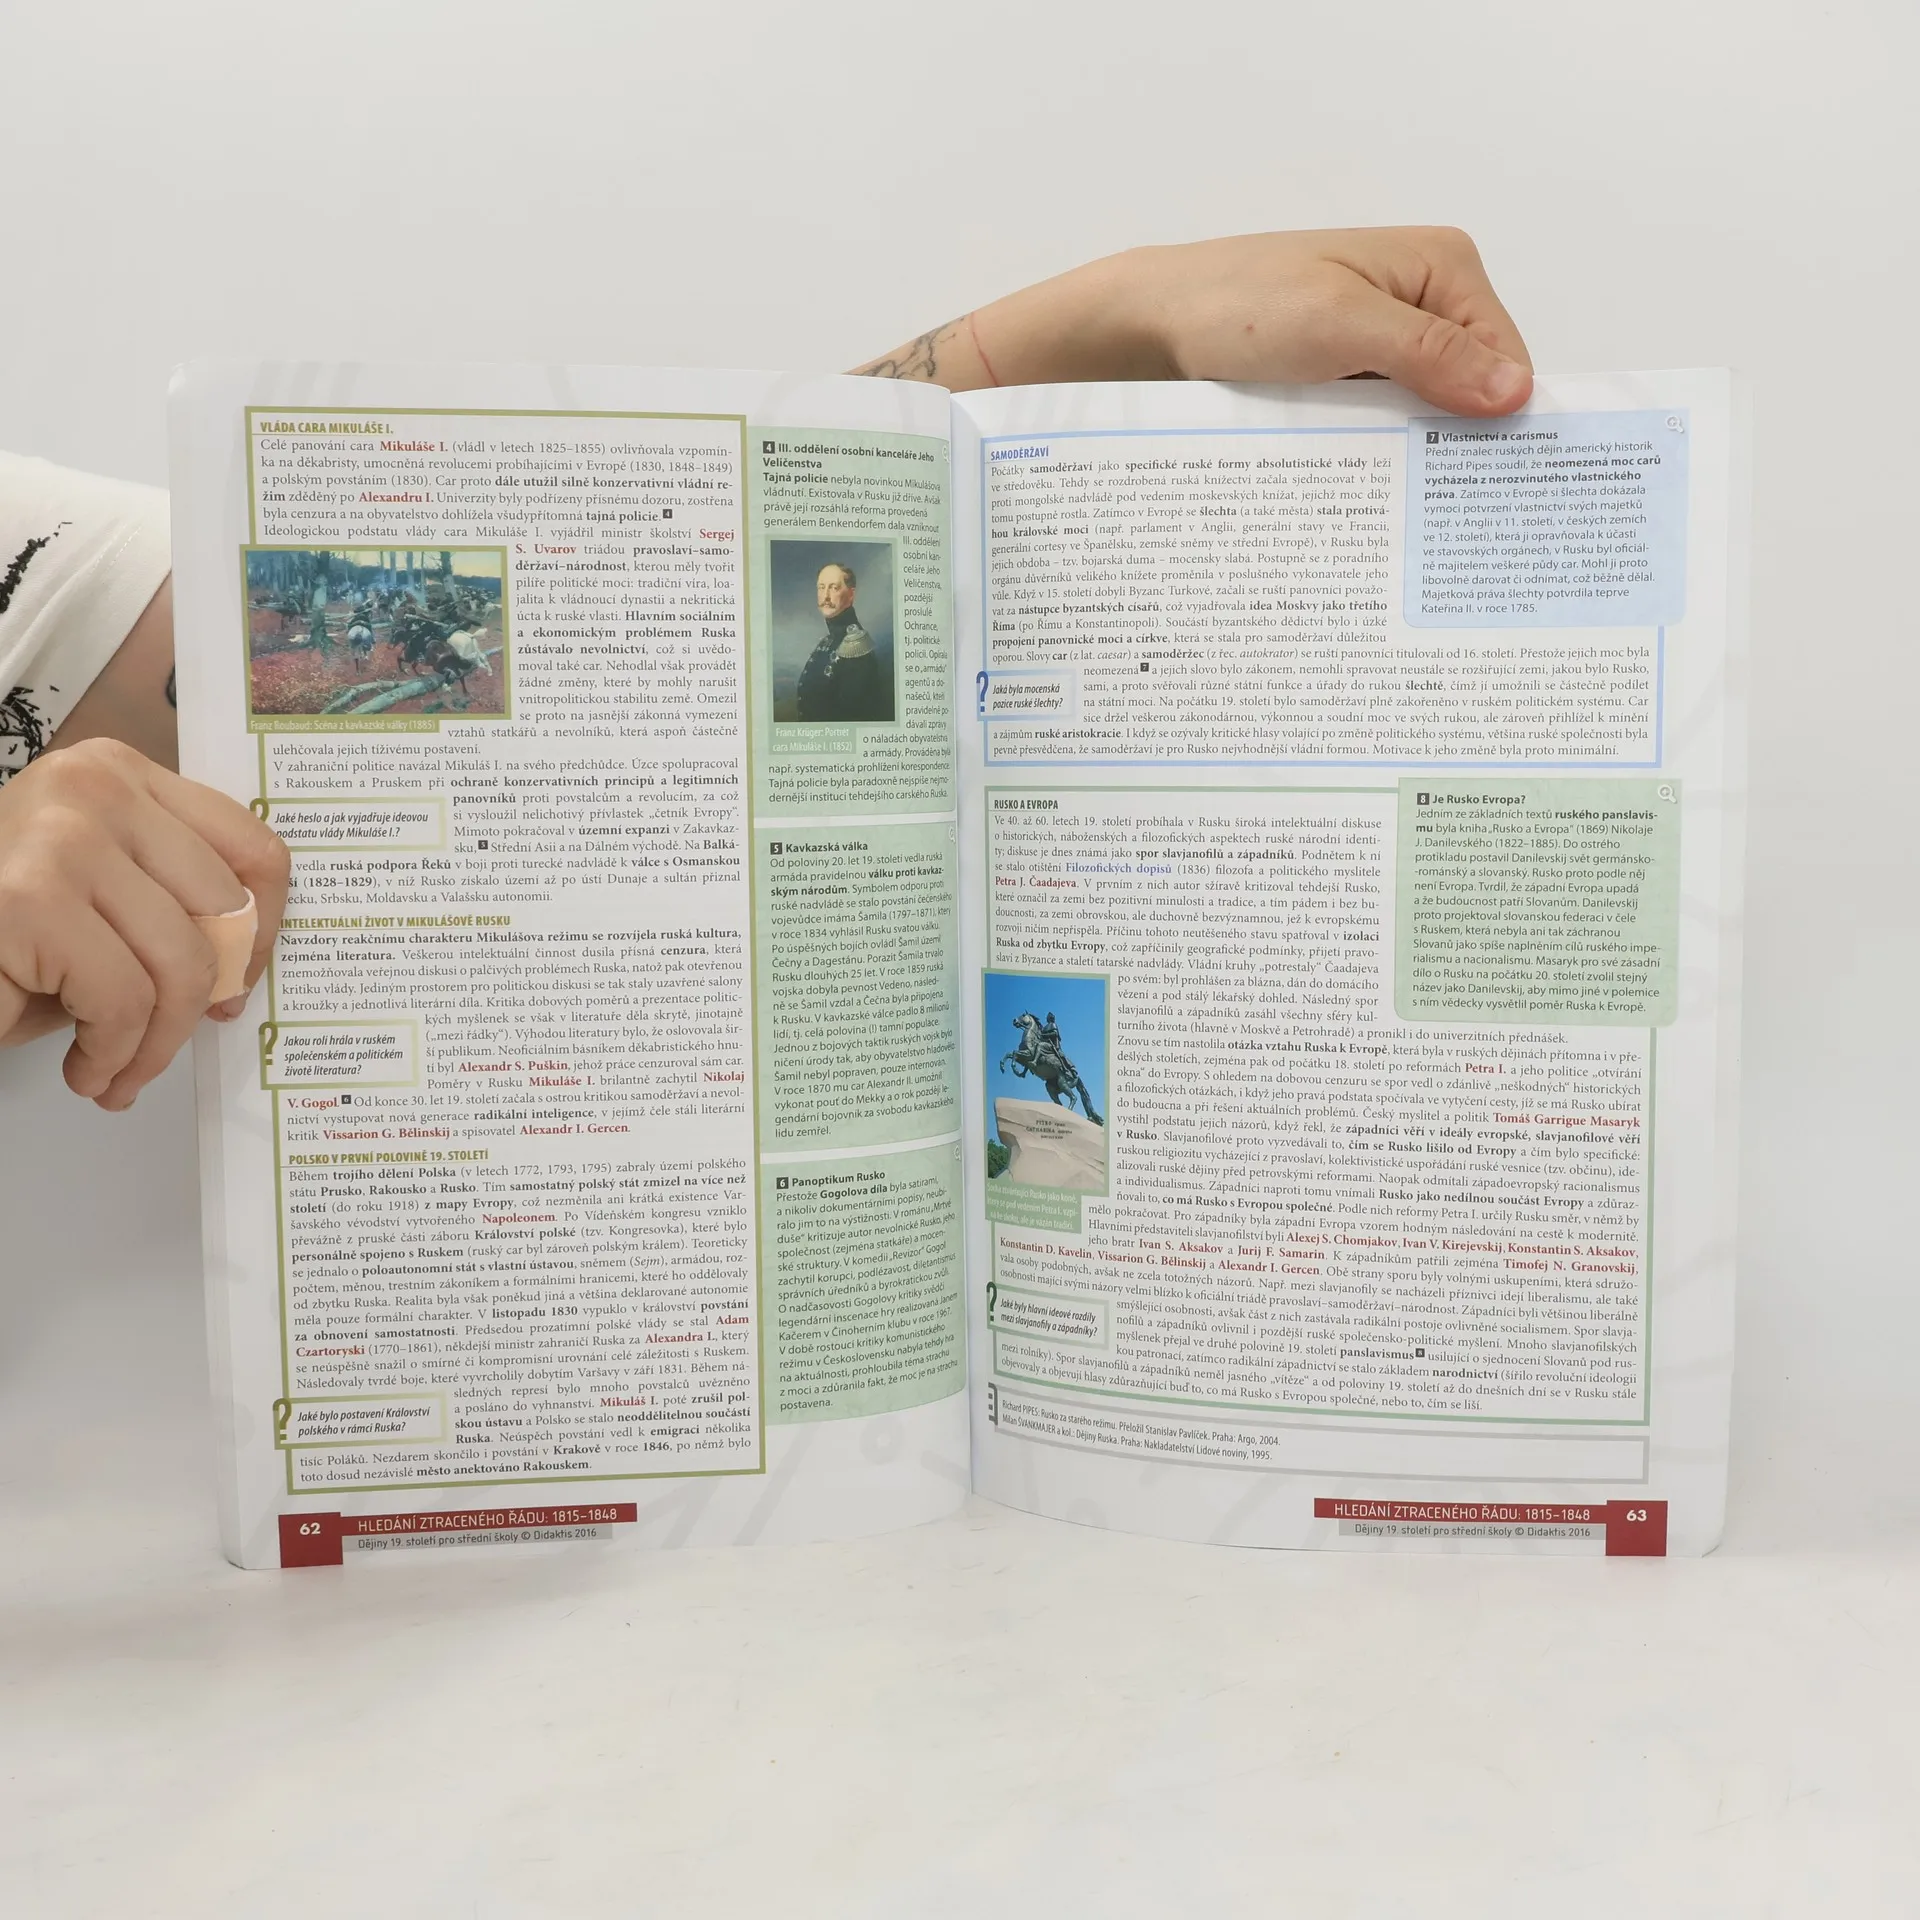 VLÁDA CARA MIKULÁŠE I.
Celé panování cara Mikuláše I. (vládl v letech 1825–1855) ovlivňovala vzpomín-
ka na děkabristy, umocněná revolucemi probíhajícími v Evropě (1830, 1848–1849)
a polským povstáním (1830). Car proto dále utužil silně konzervativní vládní re-
žim zděděný po Alexandru I. Univerzity byly podřízeny přísnému dozoru, zostřena
byla cenzura a na obyvatelstvo dohlížela všudypřítomná tajná policie. 4
Ideologickou podstatu vlády cara Mikuláše I. vyjádřil ministr školství Sergej
S. Uvarov triádou pravoslaví–samo-
děržaví–národnost, kterou měly tvořit
pilíře politické moci: tradiční víra, loa-
jalita k vládnoucí dynastii a nekritická
úcta k ruské vlasti. Hlavním sociálním
a ekonomickým problémem Ruska
zůstávalo nevolnictví, což si uvědo-
moval také car. Nehodlal však provádět
žádné změny, které by mohly narušit
vnitropolitickou stabilitu země. Omezil
se proto na jasnější zákonná vymezení
Franz Roubaud: Scéna z kavkazské války (1885)
vztahů statkářů a nevolníků, která aspoň částečně
ulehčovala jejich tíživému postavení.
V zahraniční politice navázal Mikuláš I. na svého předchůdce. Úzce spolupracoval
s Rakouskem a Pruskem při ochraně konzervativních principů a legitimních
panovníků proti povstalcům a revolucím, za což
si vysloužil nelichotivý přívlastek „četník Evropy“.
Mimoto pokračoval v územní expanzi v Zakavkaz-
sku, 5 Střední Asii a na Dálném východě. Na Balká-
Jaké heslo a jak vyjadřuje ideovou
podstatu vlády Mikuláše I.?
vedla ruská podpora Řeků v boji proti turecké nadvládě k válce s Osmanskou
ší (1828–1829), v níž Rusko získalo území až po ústí Dunaje a sultán přiznal
ecku, Srbsku, Moldavsku a Valašsku autonomii.
INTELEKTUÁLNÍ ŽIVOT V MIKULÁŠOVĚ RUSKU
Navzdory reakčnímu charakteru Mikulášova režimu se rozvíjela ruská kultura,
zejména literatura. Veškerou intelektuální činnost dusila přísná cenzura, která
znemožňovala veřejnou diskusi o palčivých problémech Ruska, natož pak otevřenou
kritiku vlády. Jediným prostorem pro politickou diskusi se tak staly uzavřené salony
a kroužky a jednotlivá literární díla. Kritika dobových poměrů a prezentace politic-
kých myšlenek se však v literatuře děla skrytě, jinotajně
(„mezi řádky“). Výhodou literatury bylo, že oslovovala šir-
ší publikum. Neoficiálním básníkem děkabristického hnu-
tí byl Alexandr S. Puškin, jehož práce cenzuroval sám car.
Poměry v Rusku Mikuláše I. brilantně zachytil Nikolaj
Jakou roli hrála v ruském
společenském a politickém
životě literatura?
V. Gogol. 6 Od konce 30. let 19. století začala s ostrou kritikou samoděržaví a nevol-
nictví vystupovat nová generace radikální inteligence, v jejímž čele stáli literární
kritik Vissarion G. Bělinskij a spisovatel Alexandr I. Gercen.
POLSKO V PRVNÍ POLOVINĚ 19. STOLETÍ
Během trojího dělení Polska (v letech 1772, 1793, 1795) zabraly území polského
státu Prusko, Rakousko a Rusko. Tím samostatný polský stát zmizel na více než
století (do roku 1918) z mapy Evropy, což nezměnila ani krátká existence Var-
šavského vévodství vytvořeného Napoleonem. Po Vídeňském kongresu vzniklo
převážně z pruské části záboru Království polské (tzv. Kongresovka), které bylo
personálně spojeno s Ruskem (ruský car byl zároveň polským králem). Teoreticky
se jednalo o poloautonomní stát s vlastní ústavou, sněmem (Sejm), armádou, roz-
počtem, měnou, trestním zákoníkem a formálními hranicemi, které ho oddělovaly
od zbytku Ruska. Realita byla však poněkud jiná a většina deklarované autonomie
měla pouze formální charakter. V listopadu 1830 vypuklo v království povstání
za obnovení samostatnosti. Předsedou prozatímní polské vlády se stal Adam
Czartoryski (1770–1861), někdejší ministr zahraničí Ruska za Alexandra I., který
se neúspěšně snažil o smírné či kompromisní urovnání celé záležitosti s Ruskem.
Následovaly tvrdé boje, které vyvrcholily dobytím Varšavy v září 1831. Během ná-
sledných represí bylo mnoho povstalců uvězněno
a posláno do vyhnanství. Mikuláš I. poté zrušil pol-
skou ústavu a Polsko se stalo neoddělitelnou součástí
Ruska. Neúspěch povstání vedl k emigraci několika
Jaké bylo postavení Království
polského v rámci Ruska?
tisíc Poláků. Nezdarem skončilo i povstání v Krakově v roce 1846, po němž bylo
toto dosud nezávislé město anektováno Rakouskem.
4 III. oddělení osobní kanceláře Jeho
Veličenstva
Tajná policie nebyla novinkou Mikulášova
vládnutí. Existovala v Rusku již dříve. Avšak
právě její rozsáhlá reforma provedená
generálem Benkendorfem dala vzniknout
III. oddělení
osobní kan-
celáře Jeho
Veličenstva,
později
proslulé
Ochrance,
tj. politické
policii. Opírala
se o „armádu“
agentů a do-
našečů, kteří
pravidelně po-
dávali zprávy
Franz Krüger: Portrét
cara Mikuláše I. (1852)
o náladách obyvatelstva
a armády. Prováděna byla
např. systematická prohlížení korespondence.
Tajná policie byla paradoxně nejspíše nejmo-
dernější institucí tehdejšího carského Ruska.
5 Kavkazská válka
Od poloviny 20. let 19. století vedla ruská
armáda pravidelnou válku proti kavkaz-
ským národům. Symbolem odporu proti
ruské nadvládě se stalo povstání čečenského
vojevůdce imáma Šamila (1797–1871), který
v roce 1834 vyhlásil Rusku svatou válku.
Po úspěšných bojích ovládl Šamil území
Čečny a Dagestánu. Porazit Šamila trvalo
Rusku dlouhých 25 let. V roce 1859 ruská
vojska dobyla pevnost Vedeno, násled-
ně se Šamil vzdal a Čečna byla připojena
k Rusku. V kavkazské válce padlo 8 milionů
lidí, tj. celá polovina (!) tamní populace.
Jednou z bojových taktik ruských vojsk bylo
ničení úrody tak, aby obyvatelstvo hladovělo.
Šamil nebyl popraven, pouze internován.
V roce 1870 mu car Alexandr II. umožnil
vykonat pouť do Mekky a o rok později le-
gendární bojovník za svobodu kavkazského
lidu zemřel.
6 Panoptikum Rusko
Přestože Gogolova díla byla satirami,
a nikoliv dokumentárními popisy, neubí-
ralo jim to na výstižnosti. V románu „Mrtvé
duše“ kritizuje autor nevolnické Rusko, jeho
společnost (zejména statkáře) a mocen-
ské struktury. V komedii „Revizor“ Gogol
zachytil korupci, podlézavost, diletantismus
správních úředníků a byrokratickou zvůli.
O nadčasovosti Gogolovy kritiky svědčí
legendární inscenace hry realizovaná Janem
Kačerem v Činoherním klubu v roce 1967.
V době rostoucí kritiky komunistického
režimu v Československu nabyla tehdy hra
na aktuálnosti, prohloubila téma strachu
z moci a zdůranila fakt, že moc je na strachu
postavena.
62 HLEDÁNÍ ZTRACENÉHO ŘÁDU: 1815–1848
Dějiny 19. století pro střední školy © Didaktis 2016
SAMODĚRŽAVÍ
Počátky samoděržaví jako specifické ruské formy absolutistické vlády leží
ve středověku. Tehdy se rozdrobená ruská knížectví začala sjednocovat v boji
proti mongolské nadvládě pod vedením moskevských knížat, jejichž moc díky
tomu postupně rostla. Zatímco v Evropě se šlechta (a také města) stala protivá-
hou královské moci (např. parlament v Anglii, generální stavy ve Francii,
generální cortesy ve Španělsku, zemské sněmy ve střední Evropě), v Rusku byla
jejich obdoba – tzv. bojarská duma – mocensky slabá. Postupně se z poradního
orgánu důvěrníků velikého knížete proměnila v poslušného vykonavatele jeho
vůle. Když v 15. století dobyli Byzanc Turkové, začali se ruští panovníci považo-
vat za nástupce byzantských císařů, což vyjadřovala idea Moskvy jako třetího
Říma (po Římu a Konstantinopoli). Součástí byzantského dědictví bylo i úzké
propojení panovnické moci a církve, která se stala pro samoděržaví důležitou
oporou. Slovy car (z lat. caesar) a samoděržec (z řec. autokrator) se ruští panovníci titulovali od 16. století. Přestože jejich moc byla
neomezená 7 a jejich slovo bylo zákonem, nemohli spravovat neustále se rozšiřující zemi, jakou bylo Rusko,
sami, a proto svěřovali různé státní funkce a úřady do rukou šlechtě, čímž jí umožnili se částečně podílet
na státní moci. Na počátku 19. století bylo samoděržaví plně zakořeněno v ruském politickém systému. Car
sice držel veškerou zákonodárnou, výkonnou a soudní moc ve svých rukou, ale zároveň přihlížel k mínění
Jaká byla mocenská
pozice ruské šlechty?
a zájmům ruské aristokracie. I když se ozývaly kritické hlasy volající po změně politického systému, většina ruské společnosti byla
pevně přesvědčena, že samoděržaví je pro Rusko nejvhodnější vládní formou. Motivace k jeho změně byla proto minimální.
7 Vlastnictví a carismus
Přední znalec ruských dějin americký historik
Richard Pipes soudil, že neomezená moc carů
vycházela z nerozvinutého vlastnického
práva. Zatímco v Evropě si šlechta dokázala
vymoci potvrzení vlastnictví svých majetků
(např. v Anglii v 11. století, v českých zemích
ve 12. století), která ji opravňovala k účasti
ve stavovských orgánech, v Rusku byl oficiál-
ně majitelem veškeré půdy car. Mohl ji proto
libovolně darovat či odnímat, což běžně dělal.
Majetková práva šlechty potvrdila teprve
Kateřina II. v roce 1785.
RUSKO A EVROPA
Ve 40. až 60. letech 19. století probíhala v Rusku široká intelektuální diskuse
o historických, náboženských a filozofických aspektech ruské národní identi-
ty; diskuse je dnes známá jako spor slavjanofilů a západníků. Podnětem k ní
se stalo otištění Filozofických dopisů (1836) filozofa a politického myslitele
Petra J. Čaadajeva. V prvním z nich autor sžíravě kritizoval tehdejší Rusko,
které označil za zemi bez pozitivní minulosti a tradice, a tím pádem i bez bu-
doucnosti, za zemi obrovskou, ale duchovně bezvýznamnou, jež k evropskému
rozvoji ničím nepřispěla. Příčinu tohoto neutěšeného stavu spatřoval v izolaci
Ruska od zbytku Evropy, což zapříčinily geografické podmínky, přijetí pravo-
slaví z Byzance a staletí tatarské nadvlády. Vládní kruhy „potrestaly“ Čaadajeva
po svém: byl prohlášen za blázna, dán do domácího
vězení a pod stálý lékařský dohled. Následný spor
slavjanofilů a západníků zasáhl všechny sféry kul-
turního života (hlavně v Moskvě a Petrohradě) a pronikl i do univerzitních přednášek.
Znovu se tím nastolila otázka vztahu Ruska k Evropě, která byla v ruských dějinách přítomna i v pře-
dešlých stoletích, zejména pak od počátku 18. století po reformách Petra I. a jeho politice „otvírání
okna“ do Evropy. S ohledem na dobovou cenzuru se spor vedl o zdánlivě „neškodných“ historických
a filozofických otázkách, i když jeho pravá podstata spočívala ve vytyčení cesty, jíž se má Rusko ubírat
do budoucna a při řešení aktuálních problémů. Český myslitel a politik Tomáš Garrigue Masaryk
vystihl podstatu jejich názorů, když řekl, že západníci věří v ideály evropské, slavjanofilové věří
v Rusko. Slavjanofilové proto vyzvedávali to, čím se Rusko lišilo od Evropy a čím bylo specifické:
ruskou religiozitu vycházející z pravoslaví, kolektivistické uspořádání ruské vesnice (tzv. občinu), ide-
alizovali ruské dějiny před petrovskými reformami. Naopak odmítali západoevropský racionalismus
a individualismus. Západníci naproti tomu vnímali Rusko jako nedílnou součást Evropy a zdůraz-
ňovali to, co má Rusko s Evropou společné. Podle nich reformy Petra I. určily Rusku směr, v němž by
mělo pokračovat. Pro západníky byla západní Evropa vzorem hodným následování na cestě k modernitě.
Hlavními představiteli slavjanofilství byli Alexej S. Chomjakov, Ivan V. Kirejevskij, Konstantin S. Aksakov,
jeho bratr Ivan S. Aksakov a Jurij F. Samarin. K západníkům patřili zejména Timofej N. Granovskij,
Konstantin D. Kavelin, Vissarion G. Bělinskij a Alexandr I. Gercen. Obě strany sporu byly volnými uskupeními, která sdružo-
vala osoby podobných, avšak ne zcela totožných názorů. Např. mezi slavjanofily se nacházeli příznivci idejí liberalismu, ale také
osobnosti mající svými názory velmi blízko k oficiální triádě pravoslaví–samoděržaví–národnost. Západníci byli většinou liberálně
smýšlející osobnosti, avšak část z nich zastávala radikální postoje ovlivněné socialismem. Spor slavja-
nofilů a západníků ovlivnil i pozdější ruské společensko-politické myšlení. Mnoho slavjanofilských
myšlenek přejal ve druhé polovině 19. století panslavismus 8 usilující o sjednocení Slovanů pod rus-
kou patronací, zatímco radikální západnictví se stalo základem narodnictví (šířilo revoluční ideologii
Jaké byly hlavní ideové rozdíly
mezi slavjanofily a západníky?
mezi rolníky). Spor slavjanofilů a západníků neměl jasného „vítěze“ a od poloviny 19. století až do dnešních dní se v Rusku stále
objevovaly a objevují hlasy zdůrazňující buď to, co má Rusko s Evropou společné, nebo to, čím se liší.
PETRO
CATHARINA
8 Je Rusko Evropa?
Jedním ze základních textů ruského panslavis-
mu byla kniha „Rusko a Evropa“ (1869) Nikolaje
J. Danilevského (1822–1885). Do ostrého
protikladu postavil Danilevskij svět germánsko-
-románský a slovanský. Rusko proto podle něj
není Evropa. Tvrdil, že západní Evropa upadá
a že budoucnost patří Slovanům. Danilevskij
proto projektoval slovanskou federaci v čele
s Ruskem, která nebyla ani tak záchranou
Slovanů jako spíše naplněním cílů ruského impe-
rialismu a nacionalismu. Masaryk pro své zásadní
dílo o Rusku na počátku 20. století zvolil stejný
název jako Danilevskij, aby mimo jiné v polemice
s ním vědecky vysvětlil poměr Ruska k Evropě.
Richard PIPES: Rusko za starého režimu. Přeložil Stanislav Pavlíček. Praha: Argo, 2004.
Milan ŠVANKMAJER a kol.: Dějiny Ruska. Praha: Nakladatelství Lidové noviny, 1995.
HLEDÁNÍ ZTRACENÉHO ŘÁDU: 1815–1848 63
Dějiny 19. století pro střední školy © Didaktis 2016